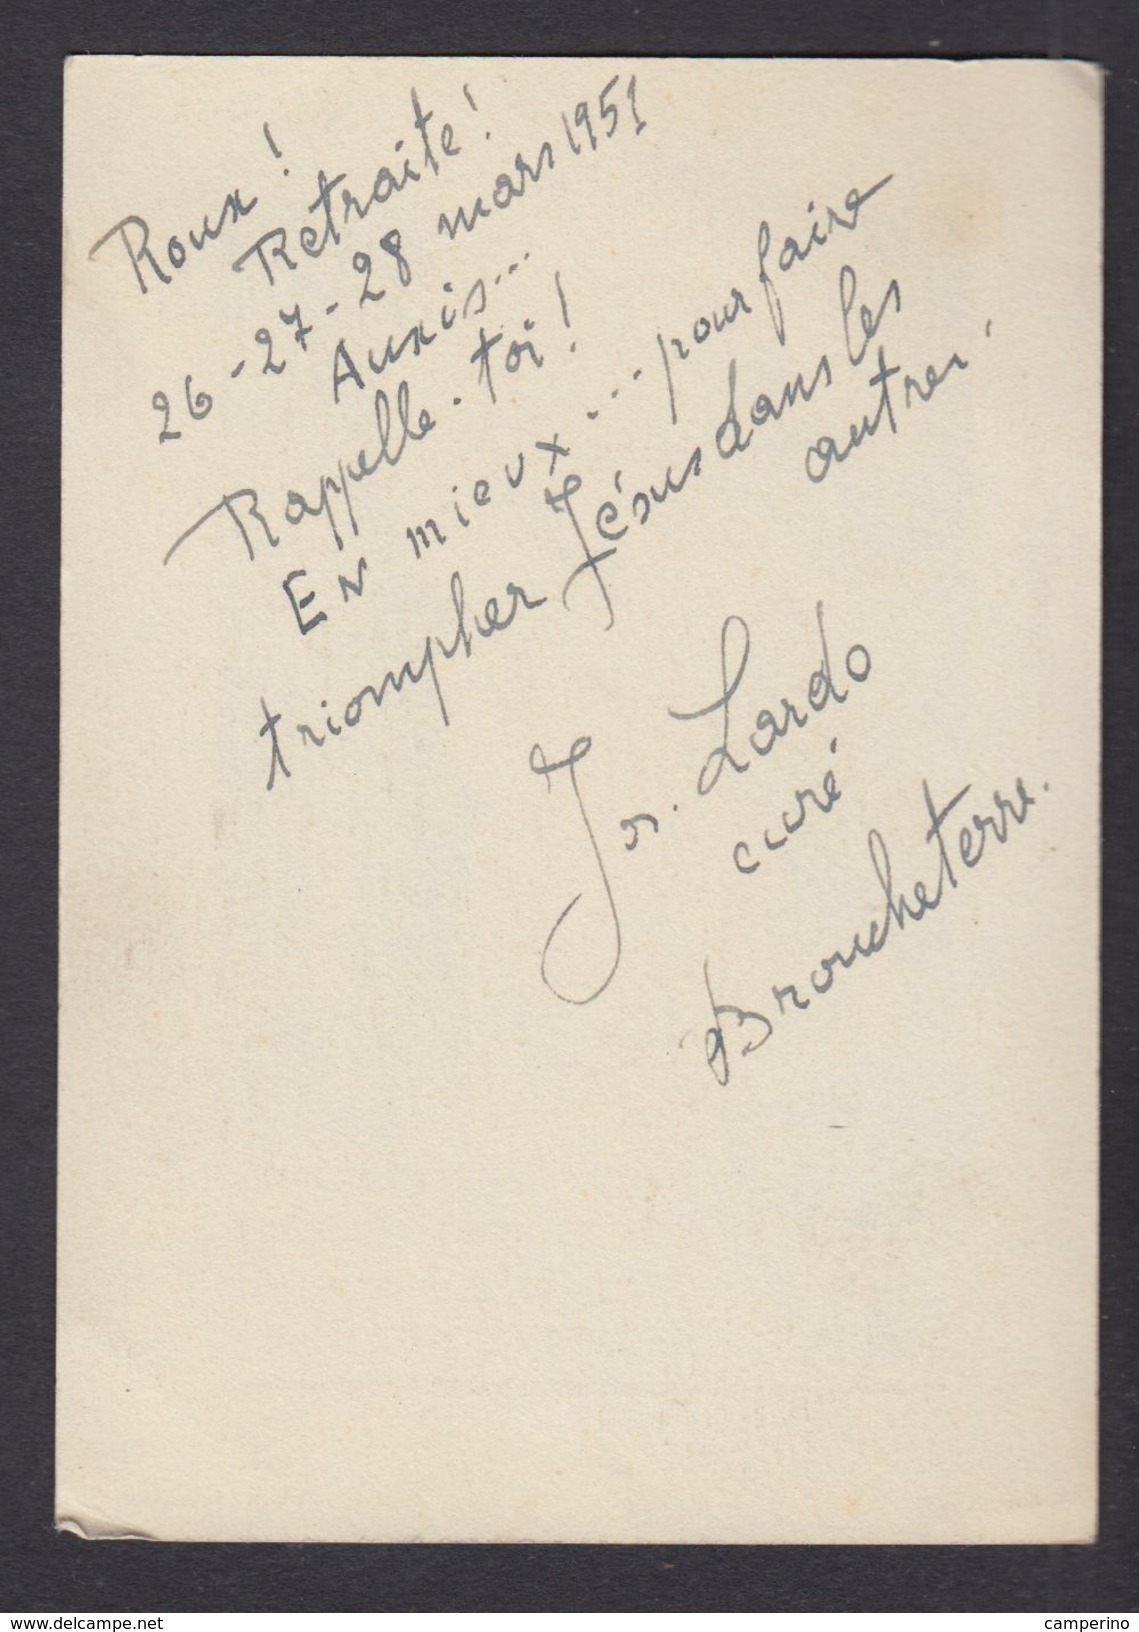 Roux !
Retraite !
26 - 27 - 28 mars 1951
Auxis...
Rappelle-toi !
En mieux ... pour faire
triompher Jésus dans les
autres.
Lardo
curé
Broucheterre.
www.delcampe.net
camperino